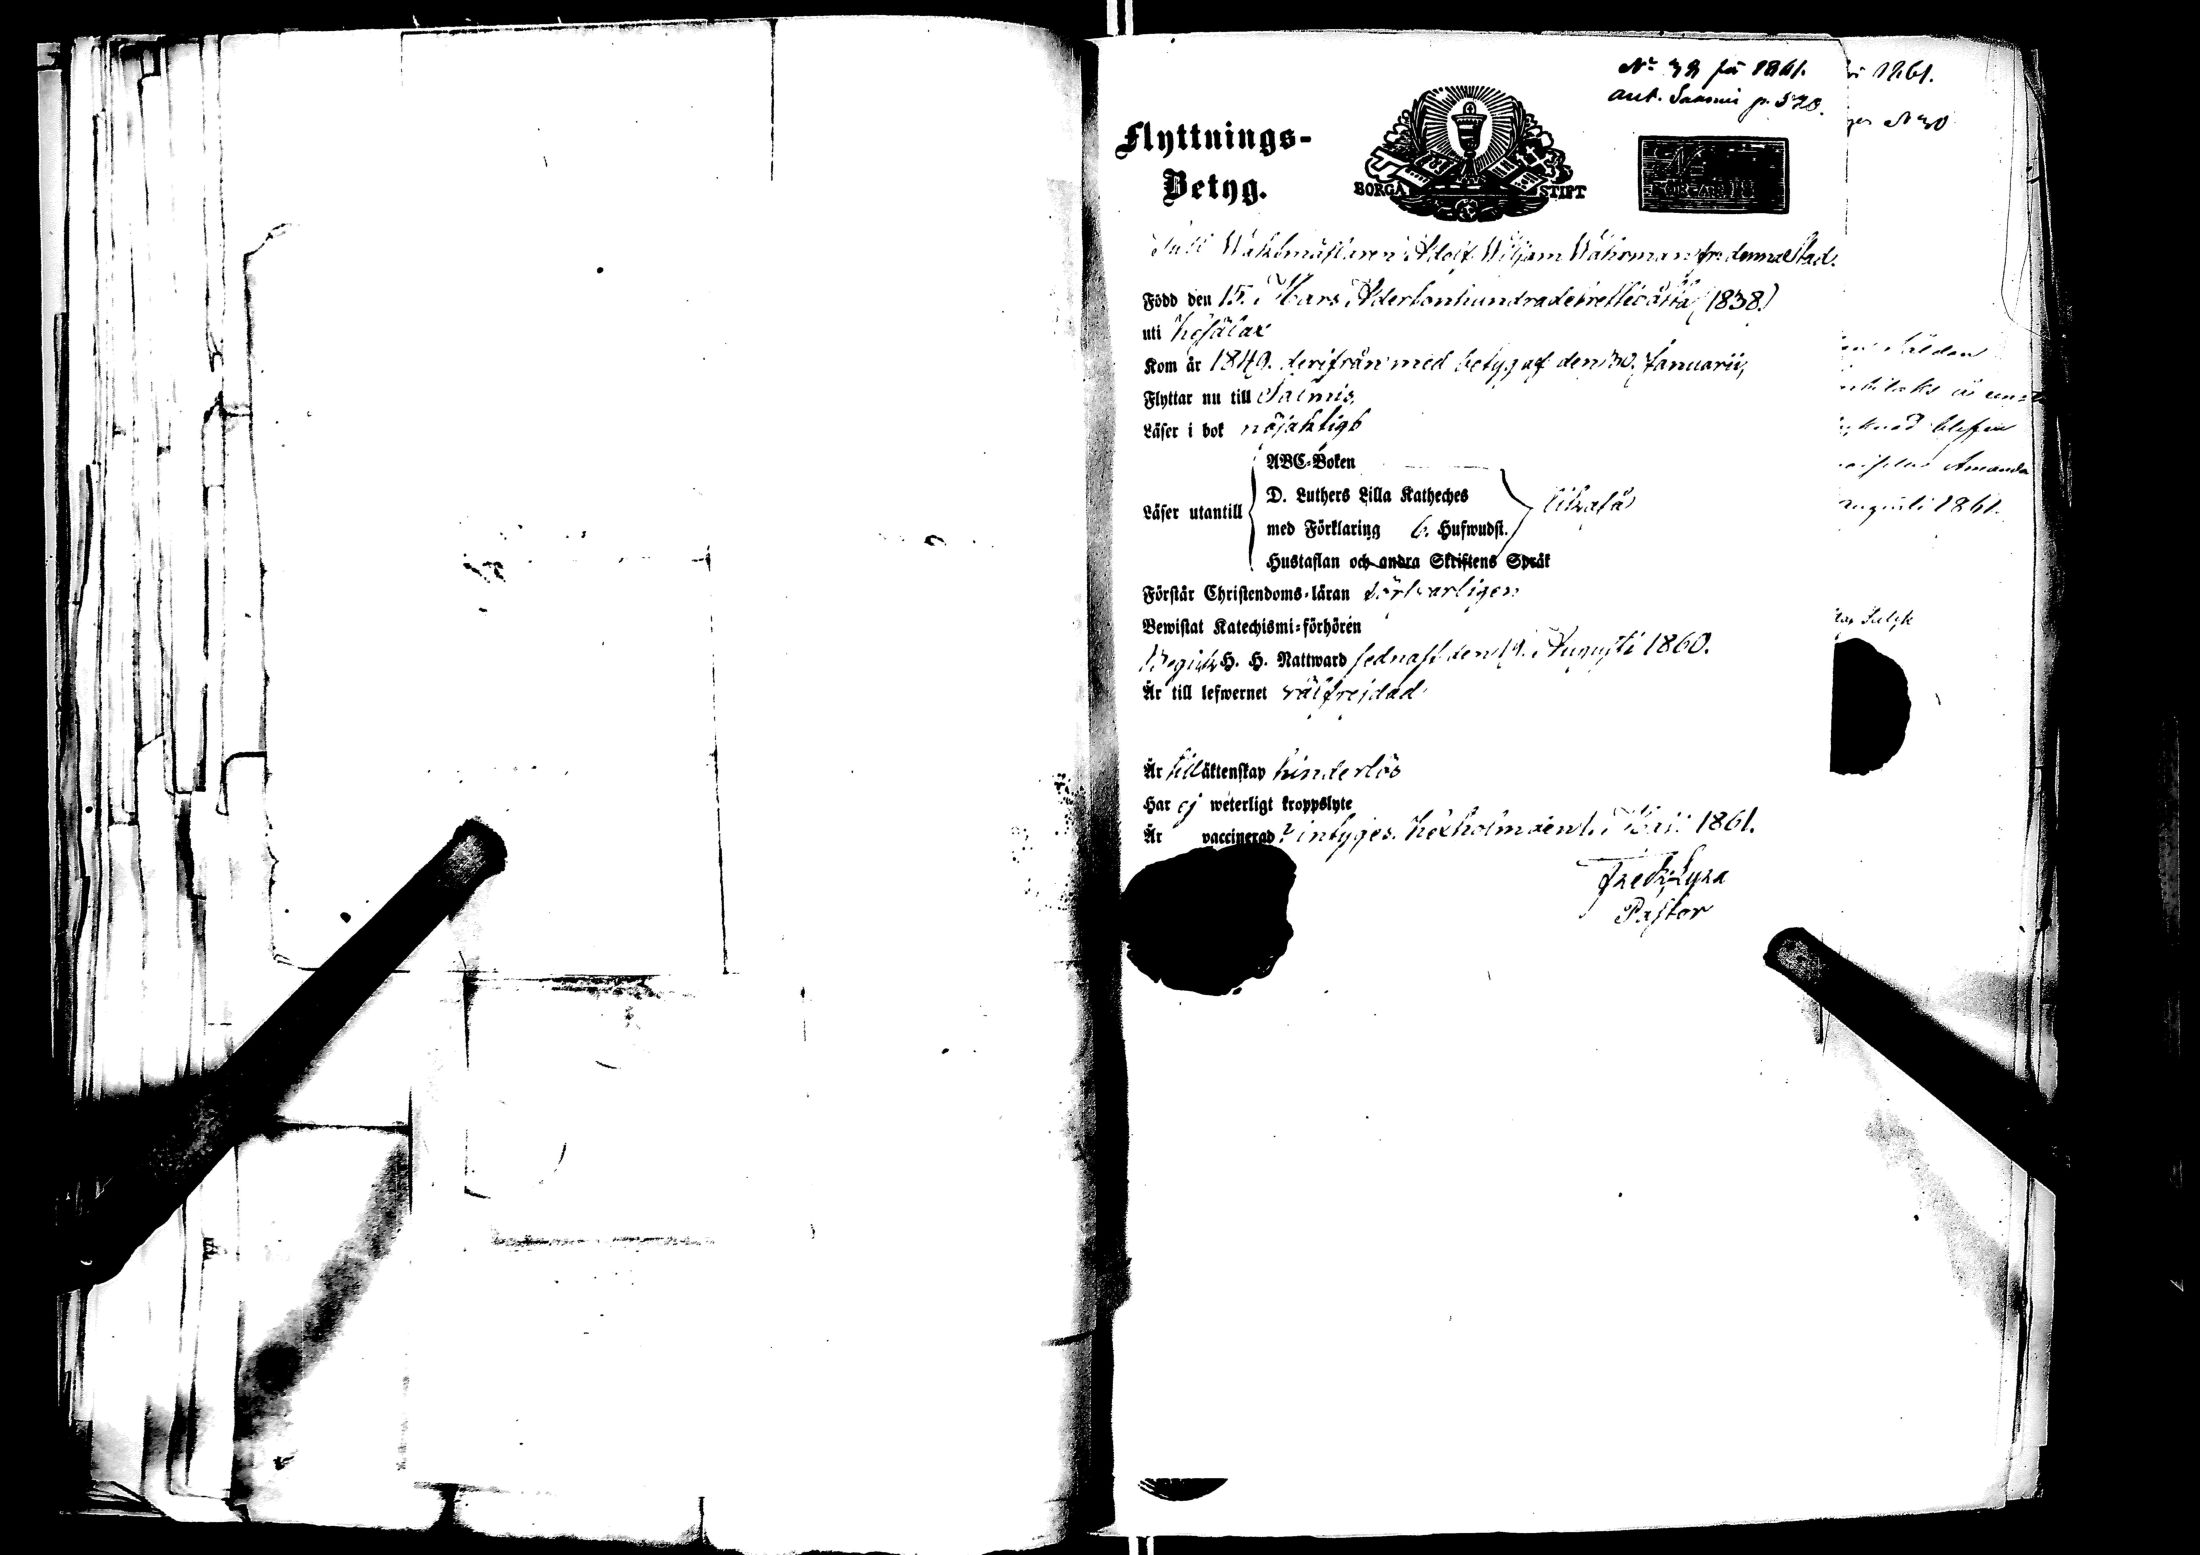 No 39 för 1861.
ant. Suomi p. 520.
Flyttnings-
Betyg.
BORGÅ STIFT
Tull Waktmästaren Adolf Wiljam Wahrman från denna Stad.
Född den 15. Mars Adertonhundradetrettioåtta (1838.)
uti Hesälax
Kom år 1849. derifrån med betyg af den 30. Januarii,
Flyttar nu till Salmis.
Läser i bok nöjaktigt
ABC-Boken
D. Luthers Lilla Kateches
Läser utantill
likaså
med Förklaring 6. Hufwudst.
Hustaflan och andra Skriftens Språk
Förstår Christendoms-läran försvarligen
Bewistat Katechismi-förhören
Begått H. H. Nattward sednast den 19. Augusti 1860.
Är till lefwernet välfrejdad
Är till äktenskap hinderlös
Har ej weterligt kroppslyte
Är vaccinerad? intygas. Kexholm den 1. Maii 1861.
Fredr. Lyra
Pastor
1861.
No 30
Amanda
augusti 1861.